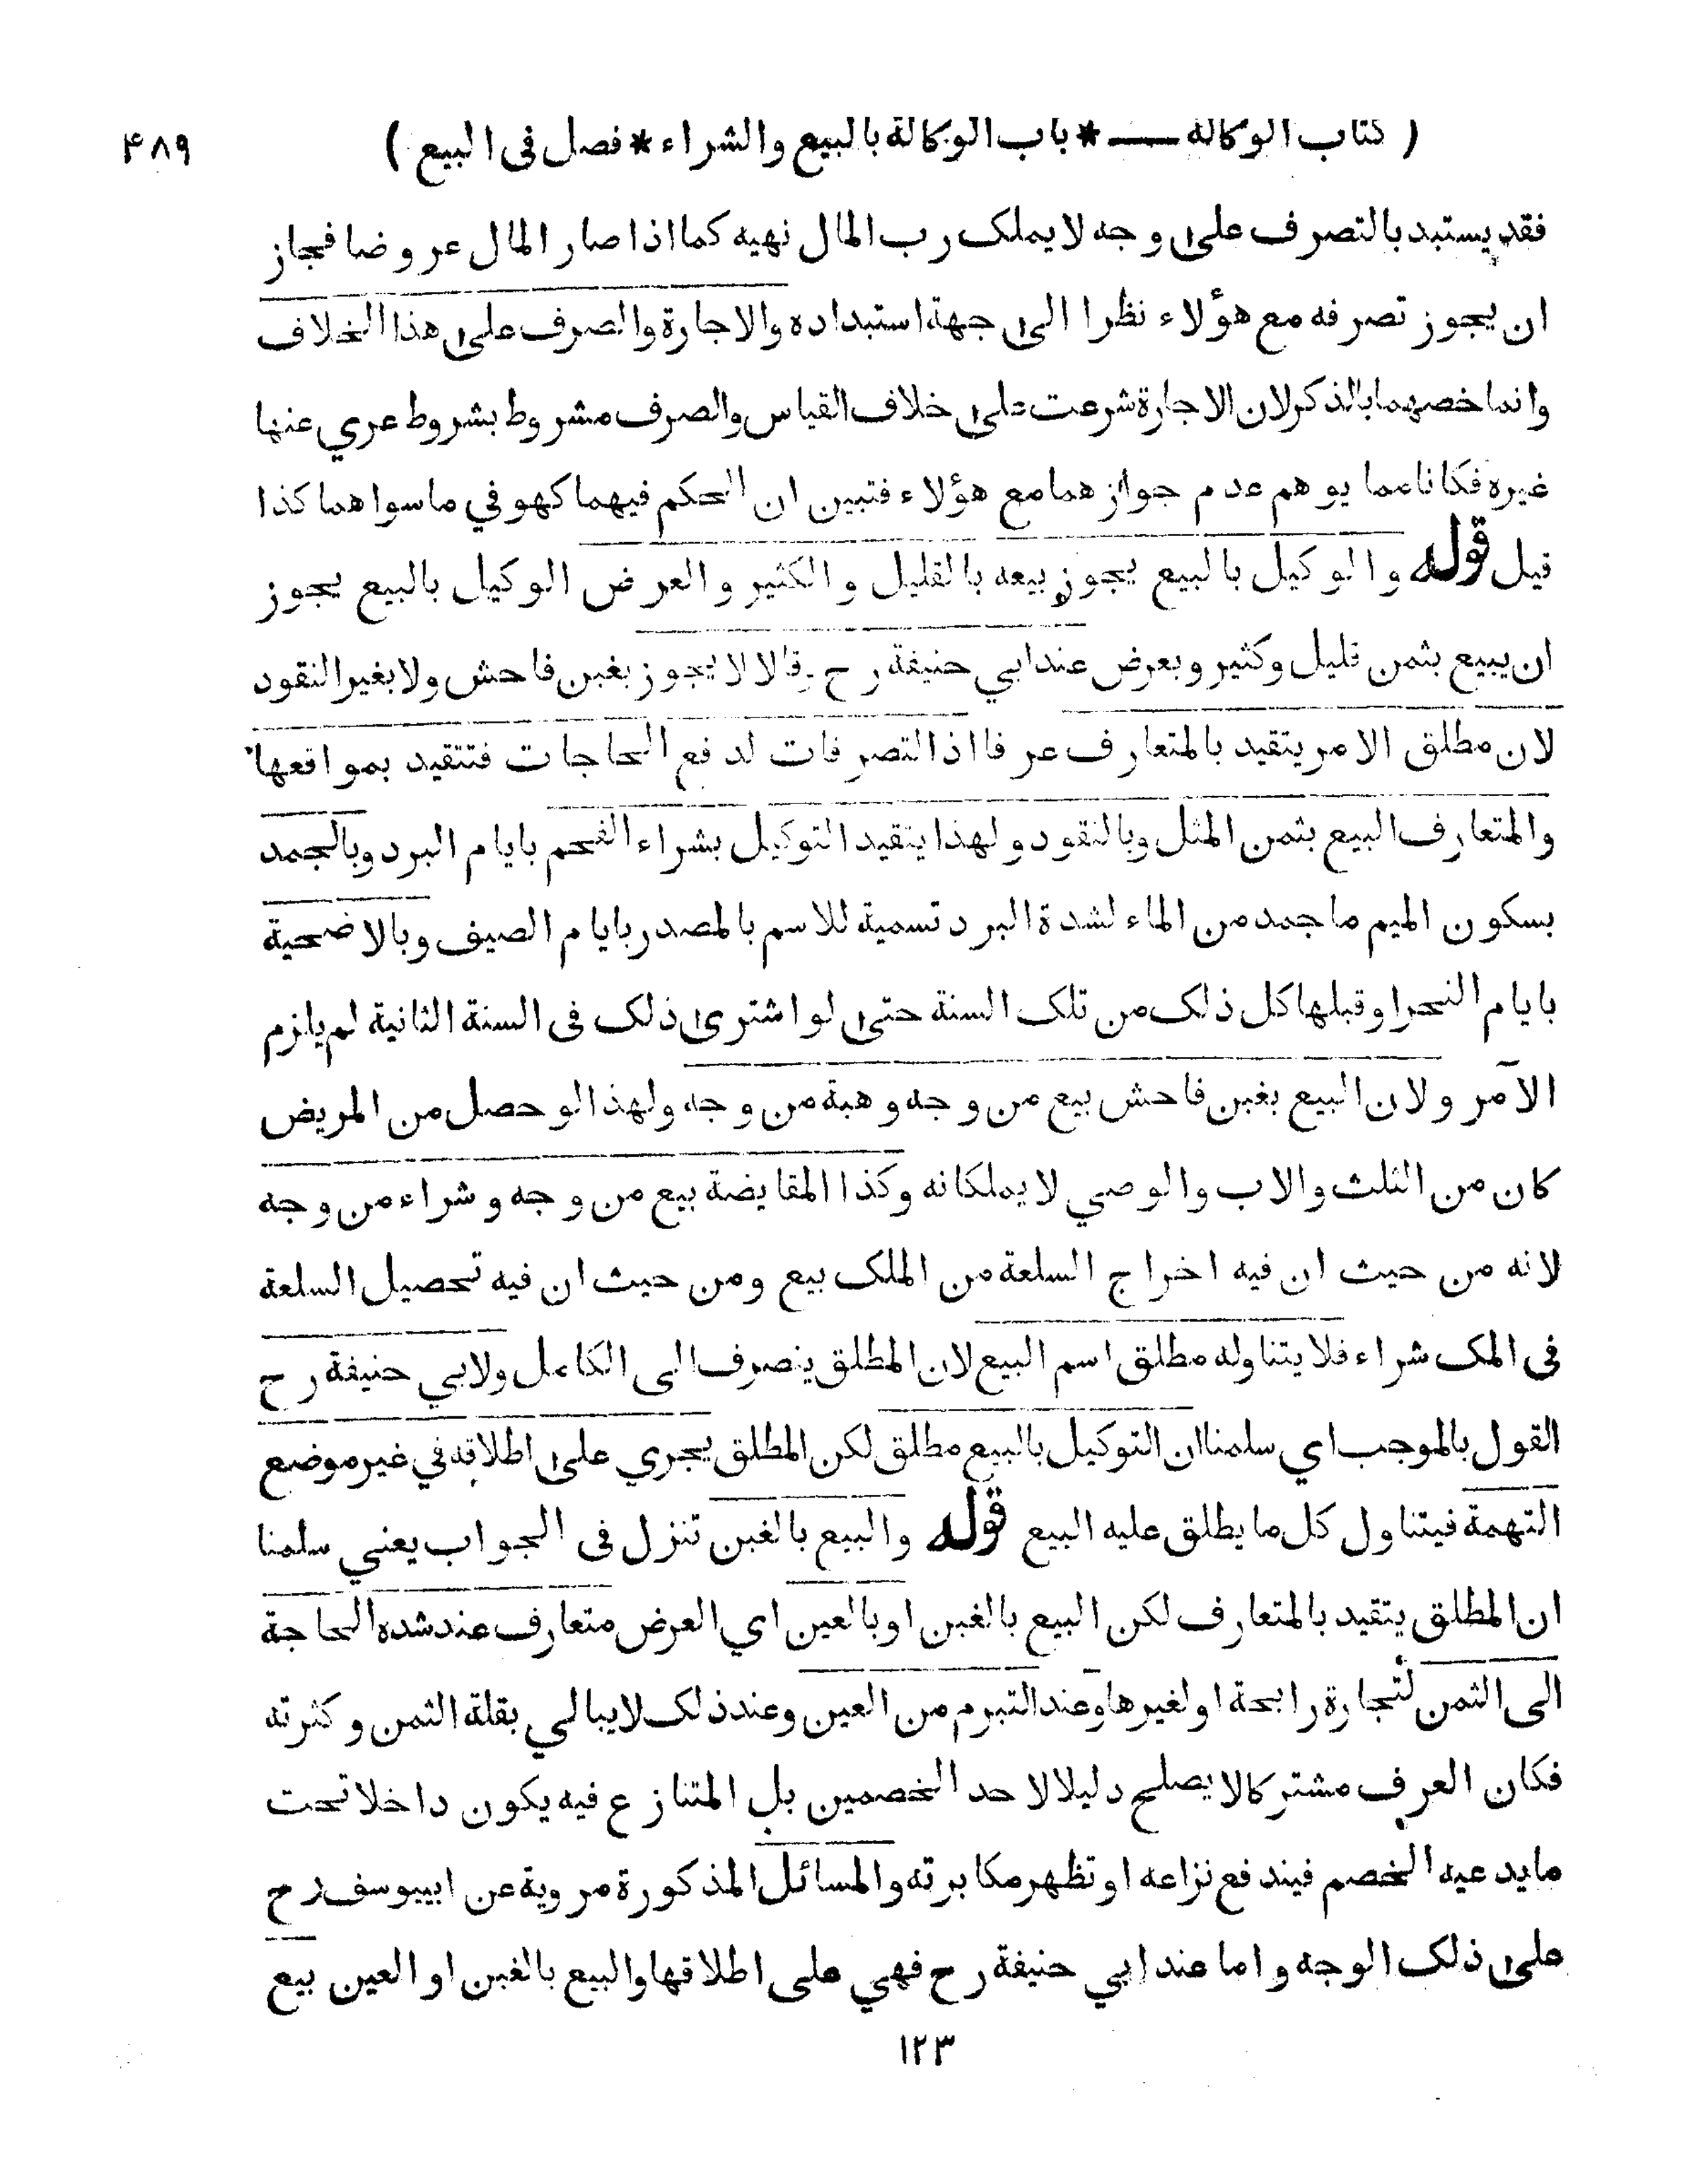 ( كتاب الوكالة — * باب الوكالة بالبيع والشراء * فصل في البيع ) ۴۸۹
فقد يستبد بالتصرف على وجه لا يملك رب المال نهيه كما اذا صار المال عروضا فجاز
ان يجوز تصرفه مع هؤلاء نظرا الى جهة استبداده والاجارة والصرف على هذا الخلاف
وانما خصهما بالذكر لان الاجارة شرعت على خلاف القياس والصرف مشروط بشروط عري عنها
غيره فكانا مما يوهم عدم جوازهما مع هؤلاء فتبين ان الحكم فيهما كهو في ما سواهما كذا
قيل قوله والوكيل بالبيع يجوز بيعه بالقليل والكثير والعرض الوكيل بالبيع يجوز
ان يبيع بثمن قليل وكثير وبعرض عند ابي حنيفة رح وقالا لا يجوز بغبن فاحش ولا بغير النقود
لان مطلق الامر يتقيد بالمتعارف عرفا اذ التصرفات لدفع الحاجات فتتقيد بمواقعها
والمتعارف البيع بثمن المثل وبالنقود ولهذا يتقيد التوكيل بشراء الفحم بايام البرد وبالجمد
بسكون الميم ما جمد من الماء لشدة البرد تسمية للاسم بالمصدر بايام الصيف وبالاضحية
بايام النحر او قبلها كل ذلك من تلك السنة حتى لو اشترى ذلك في السنة الثانية لم يلزم
الآمر ولان البيع بغبن فاحش بيع من وجه وهبة من وجه ولهذا لو حصل من المريض
كان من الثلث والاب والوصي لا يملكانه وكذا المقايضة بيع من وجه وشراء من وجه
لانه من حيث ان فيه اخراج السلعة من الملك بيع ومن حيث ان فيه تحصيل السلعة
في المك شراء فلا يتناوله مطلق اسم البيع لان المطلق ينصرف الى الكامل ولابي حنيفة رح
القول بالموجب اي سلمنا ان التوكيل بالبيع مطلق لكن المطلق يجري على اطلاقه في غير موضع
التهمة فيتناول كل ما يطلق عليه البيع قوله والبيع بالغبن تنزل في الجواب يعني سلمنا
ان المطلق يتقيد بالمتعارف لكن البيع بالغبن او بالعين اي العرض متعارف عند شده الحاجة
الى الثمن لتجارة رابحة او لغيرها وعند التبرم من العين وعند ذلك لا يبالي بقلة الثمن وكثرته
فكان العرف مشتركا لا يصلح دليلا لاحد الخصمين بل المتنازع فيه يكون داخلا تحت
ما يدعيه الخصم فيندفع نزاعه او تظهر مكابرته والمسائل المذكورة مروية عن ابييوسف رح
على ذلك الوجه واما عند ابي حنيفة رح فهي على اطلاقها والبيع بالغبن او العين بيع
۱۲۳